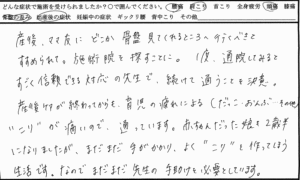 どんな症状で施術を受けられましたか？○で囲んでください。 腰痛 肩こり 首こり 全身疲労 頭痛 膝痛
骨盤の歪み 出産後の症状 妊娠中の症状 ギックリ腰 背中こり その他
産後、ママ友に どこか 骨盤 見てくれるところへ行くべきと
すすめられ、施術院を探すことに。1度、通院してみると
すぐ信頼できる対応の先生で、続けて通うことを決意。
産後ケアが終わってからも、育児の疲れによる（だっこ・おんぶ・その他
"こり"が痛いので、通っています。赤ちゃんだった娘も2歳半
になりましたが、まだまだ手がかかり、よく"こり"を作ってしまう
生活です。なのでまだまだ先生の手助けを必要としています。